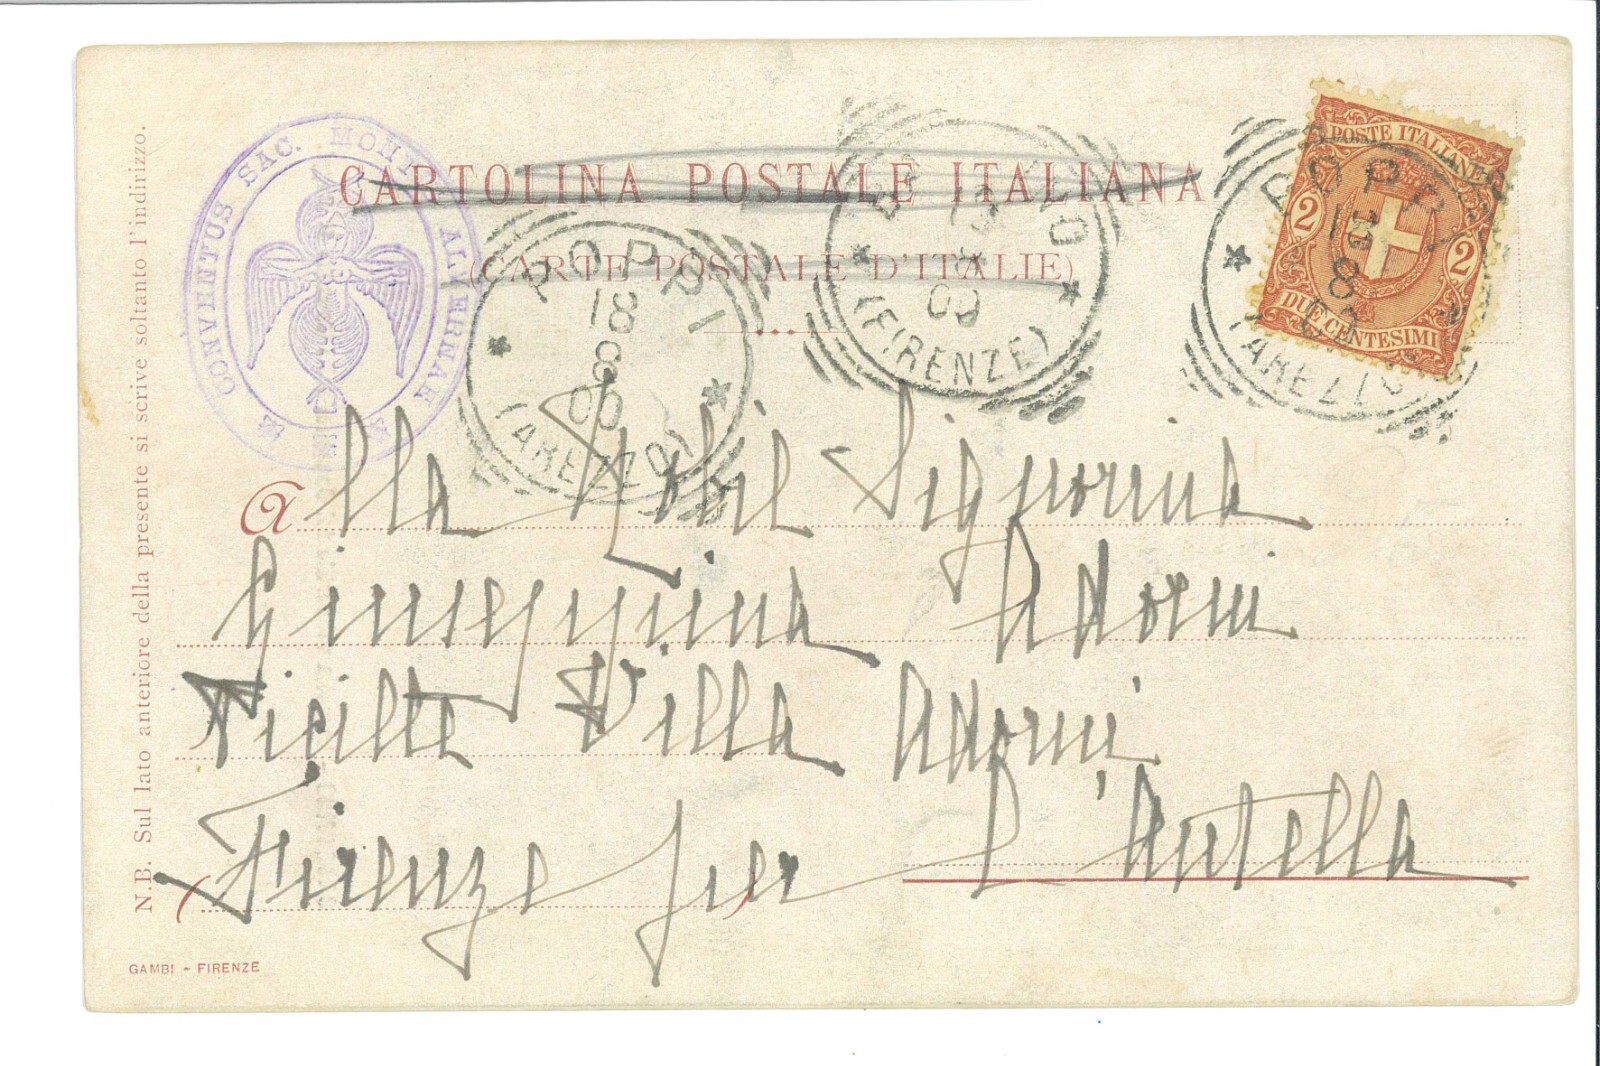 CARTOLINA POSTALE ITALIANA
(CARTE POSTALE D'ITALIE)
N.B. Sul lato anteriore della presente si scrive soltanto l'indirizzo.
CONVENTUS SAC. MONT ALVERNAE
POSTE ITALIANE
2 2
DUE CENTESIMI
POPPI
18 8
(AREZZO)
POPPI
18 8
00
(AREZZO)
00
(FIRENZE)
Alla Nobil Signorina
Giuseppina Adorni
Villa Adorni
Firenze per L'Antella
GAMBI - FIRENZE